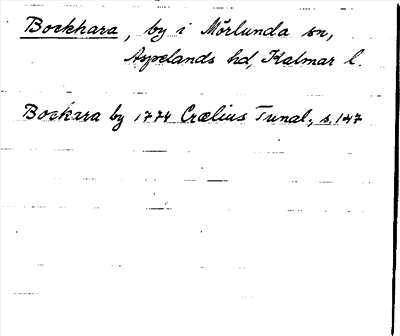 Bockhara, by i Mörlunda sn,
Aspelands hd, Kalmar l.
Bockara by 1774 Crælius Tunal, s. 147